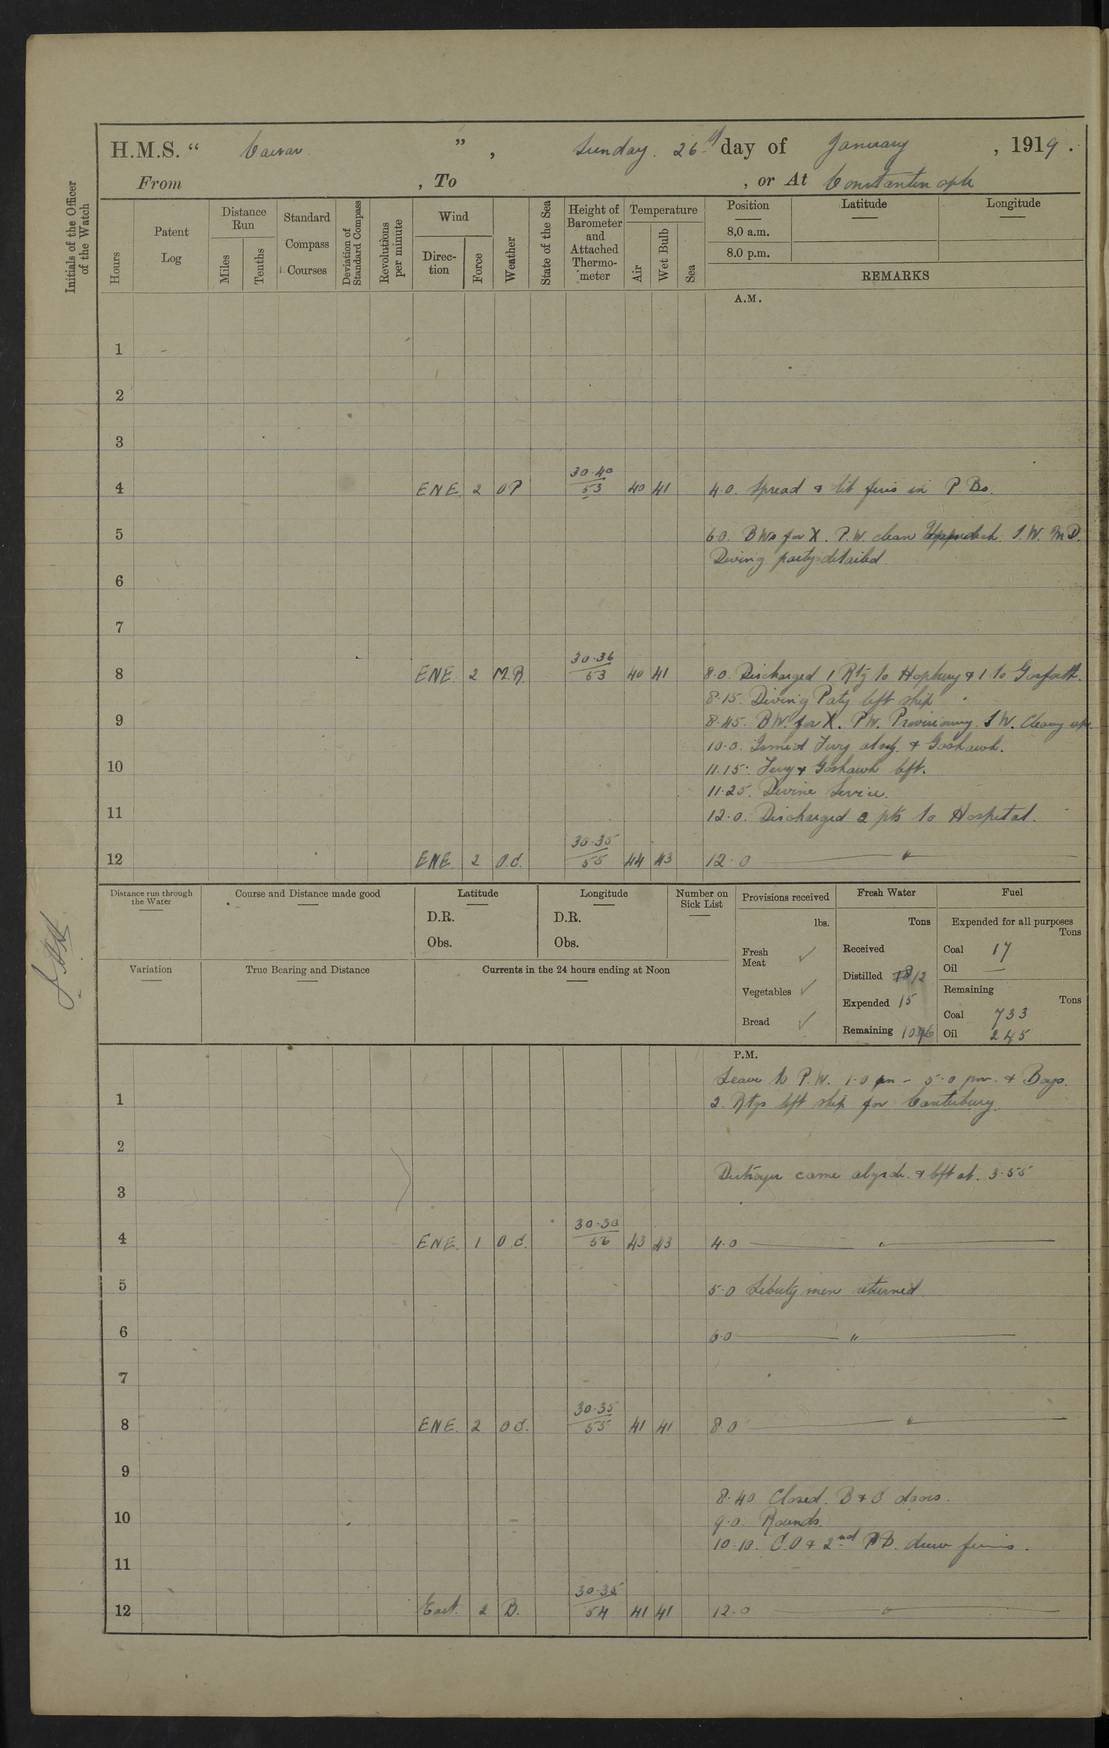 H.M.S. " Caesar " , Sunday 26th day of January , 1919.
From , To , or At Constantinople
Initials of the Officer of the Watch
Hours
Patent Log
Distance Run
Miles
Tenths
Standard Compass Courses
Deviation of Standard Compass
Revolutions per minute
Wind
Direc-tion
Force
Weather
State of the Sea
Height of Barometer and Attached Thermo-meter
Temperature
Air
Wet Bulb
Sea
Position
8,0 a.m.
8.0 p.m.
Latitude
Longitude
REMARKS
A.M.
1
2
3
4 ENE 2 OP 30·40 53 40 41 4.0. Spread & lit fires in P. Bs.
5 6.0. BWs for X. P.W. clean Upperdeck. S.W. M.D.
Diving party detailed
6
7
8 ENE 2 M.R. 30·36 53 40 41 8.0. Discharged 1 Rtg to & 1 to Gosforth.
8·15. Diving Paty left ship
9 8·45. B.W. for X. P.W. Provisioning. S.W.
10·0. Fury & Goshawk.
10 11.15. Fury & Goshawk left.
11·25. Divine Service.
11 12·0. Discharged 2 pts to Hospital.
12 ENE 2 O.d. 30·35 55 44 43 12·0 "
Distance run through the Water
Course and Distance made good
Latitude
D.R.
Obs.
Longitude
D.R.
Obs.
Number on Sick List
Provisions received
lbs.
Fresh Meat ✓
Vegetables ✓
Bread ✓
Fresh Water
Tons
Received
Distilled 12
Expended 15
Remaining
Fuel
Expended for all purposes
Tons
Coal 17
Oil —
Remaining
Tons
Coal 733
Oil 245
Variation
True Bearing and Distance
Currents in the 24 hours ending at Noon
P.M.
Leave to P.W. 1·0 pm - 5·0 pm. & Boys.
1 2 Rtgs left ship for Canterbury.
2
Destroyer came alngsde. & left at. 3·55
3
4 ENE 1 O.d. 30·30 56 43 43 4·0 "
5 5·0 Liberty men returned
6 6·0 "
7
8 ENE. 2 O.d. 30·35 55 41 41 8·0 "
9
8·40 Closed. B & S doors.
10 9·0. Rounds.
10·10. C.O & 2nd P.B. drew fires.
11
12 East. 2 B. 30·35 54 41 41 12·0 "